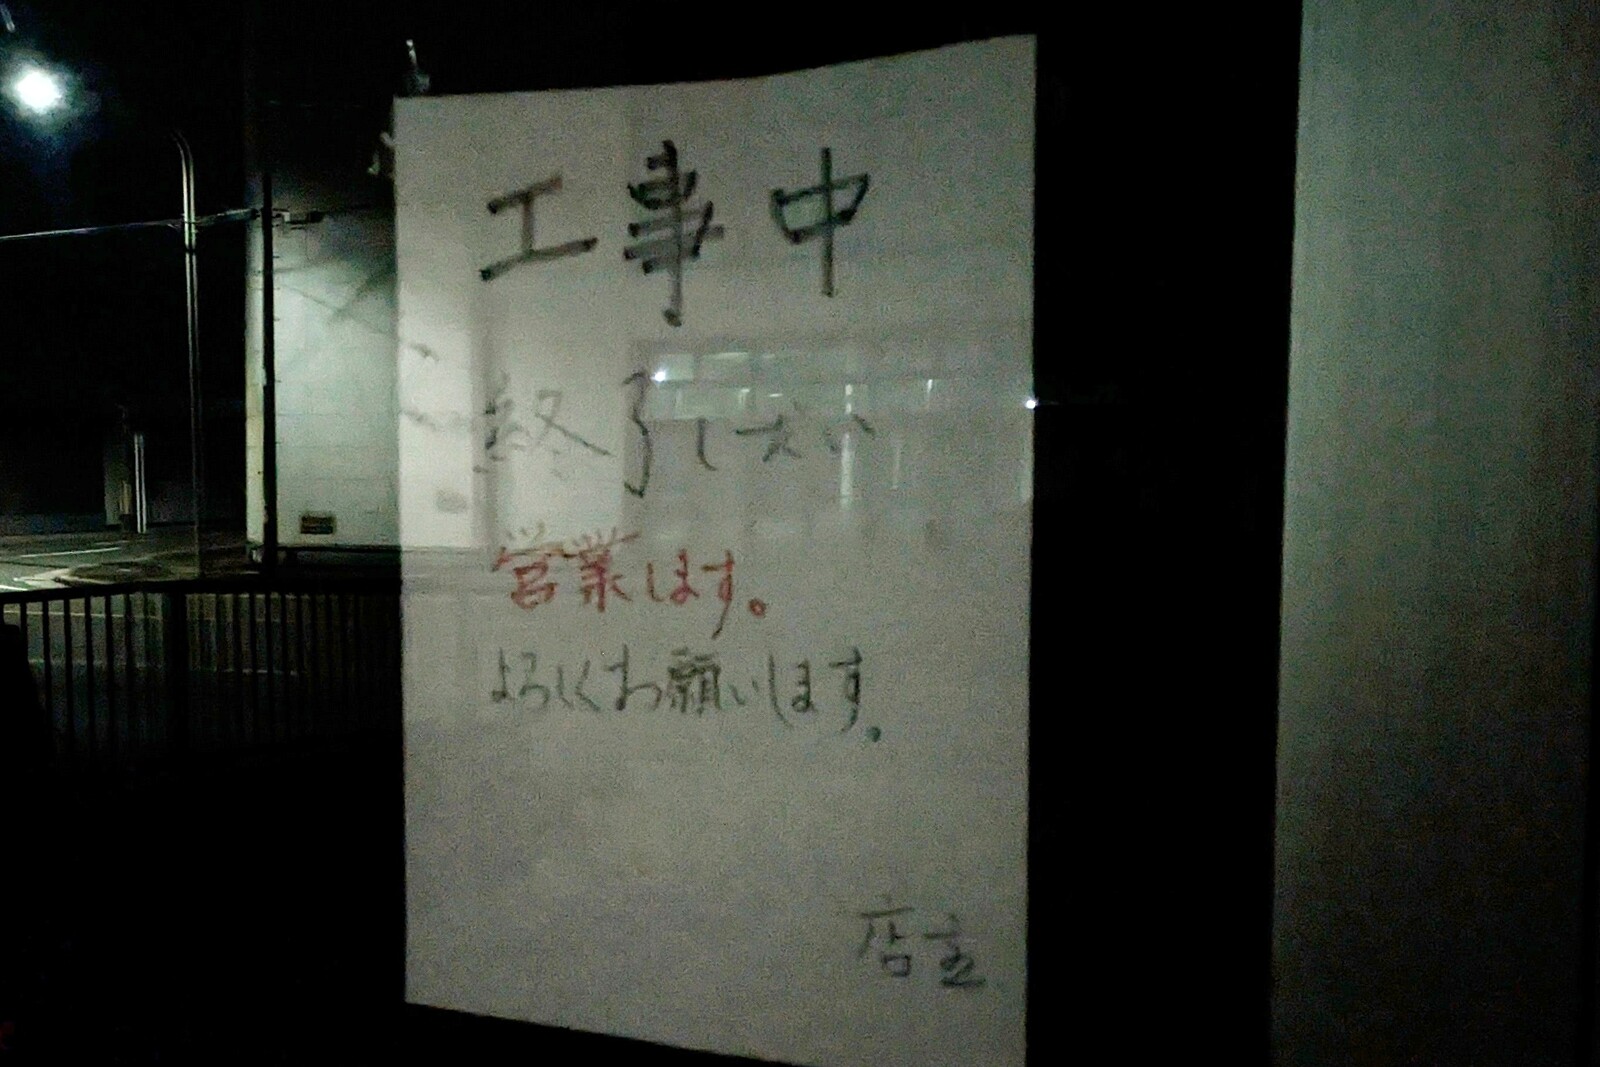 工事中
終了しだい
営業します。
よろしくお願いします。
店主